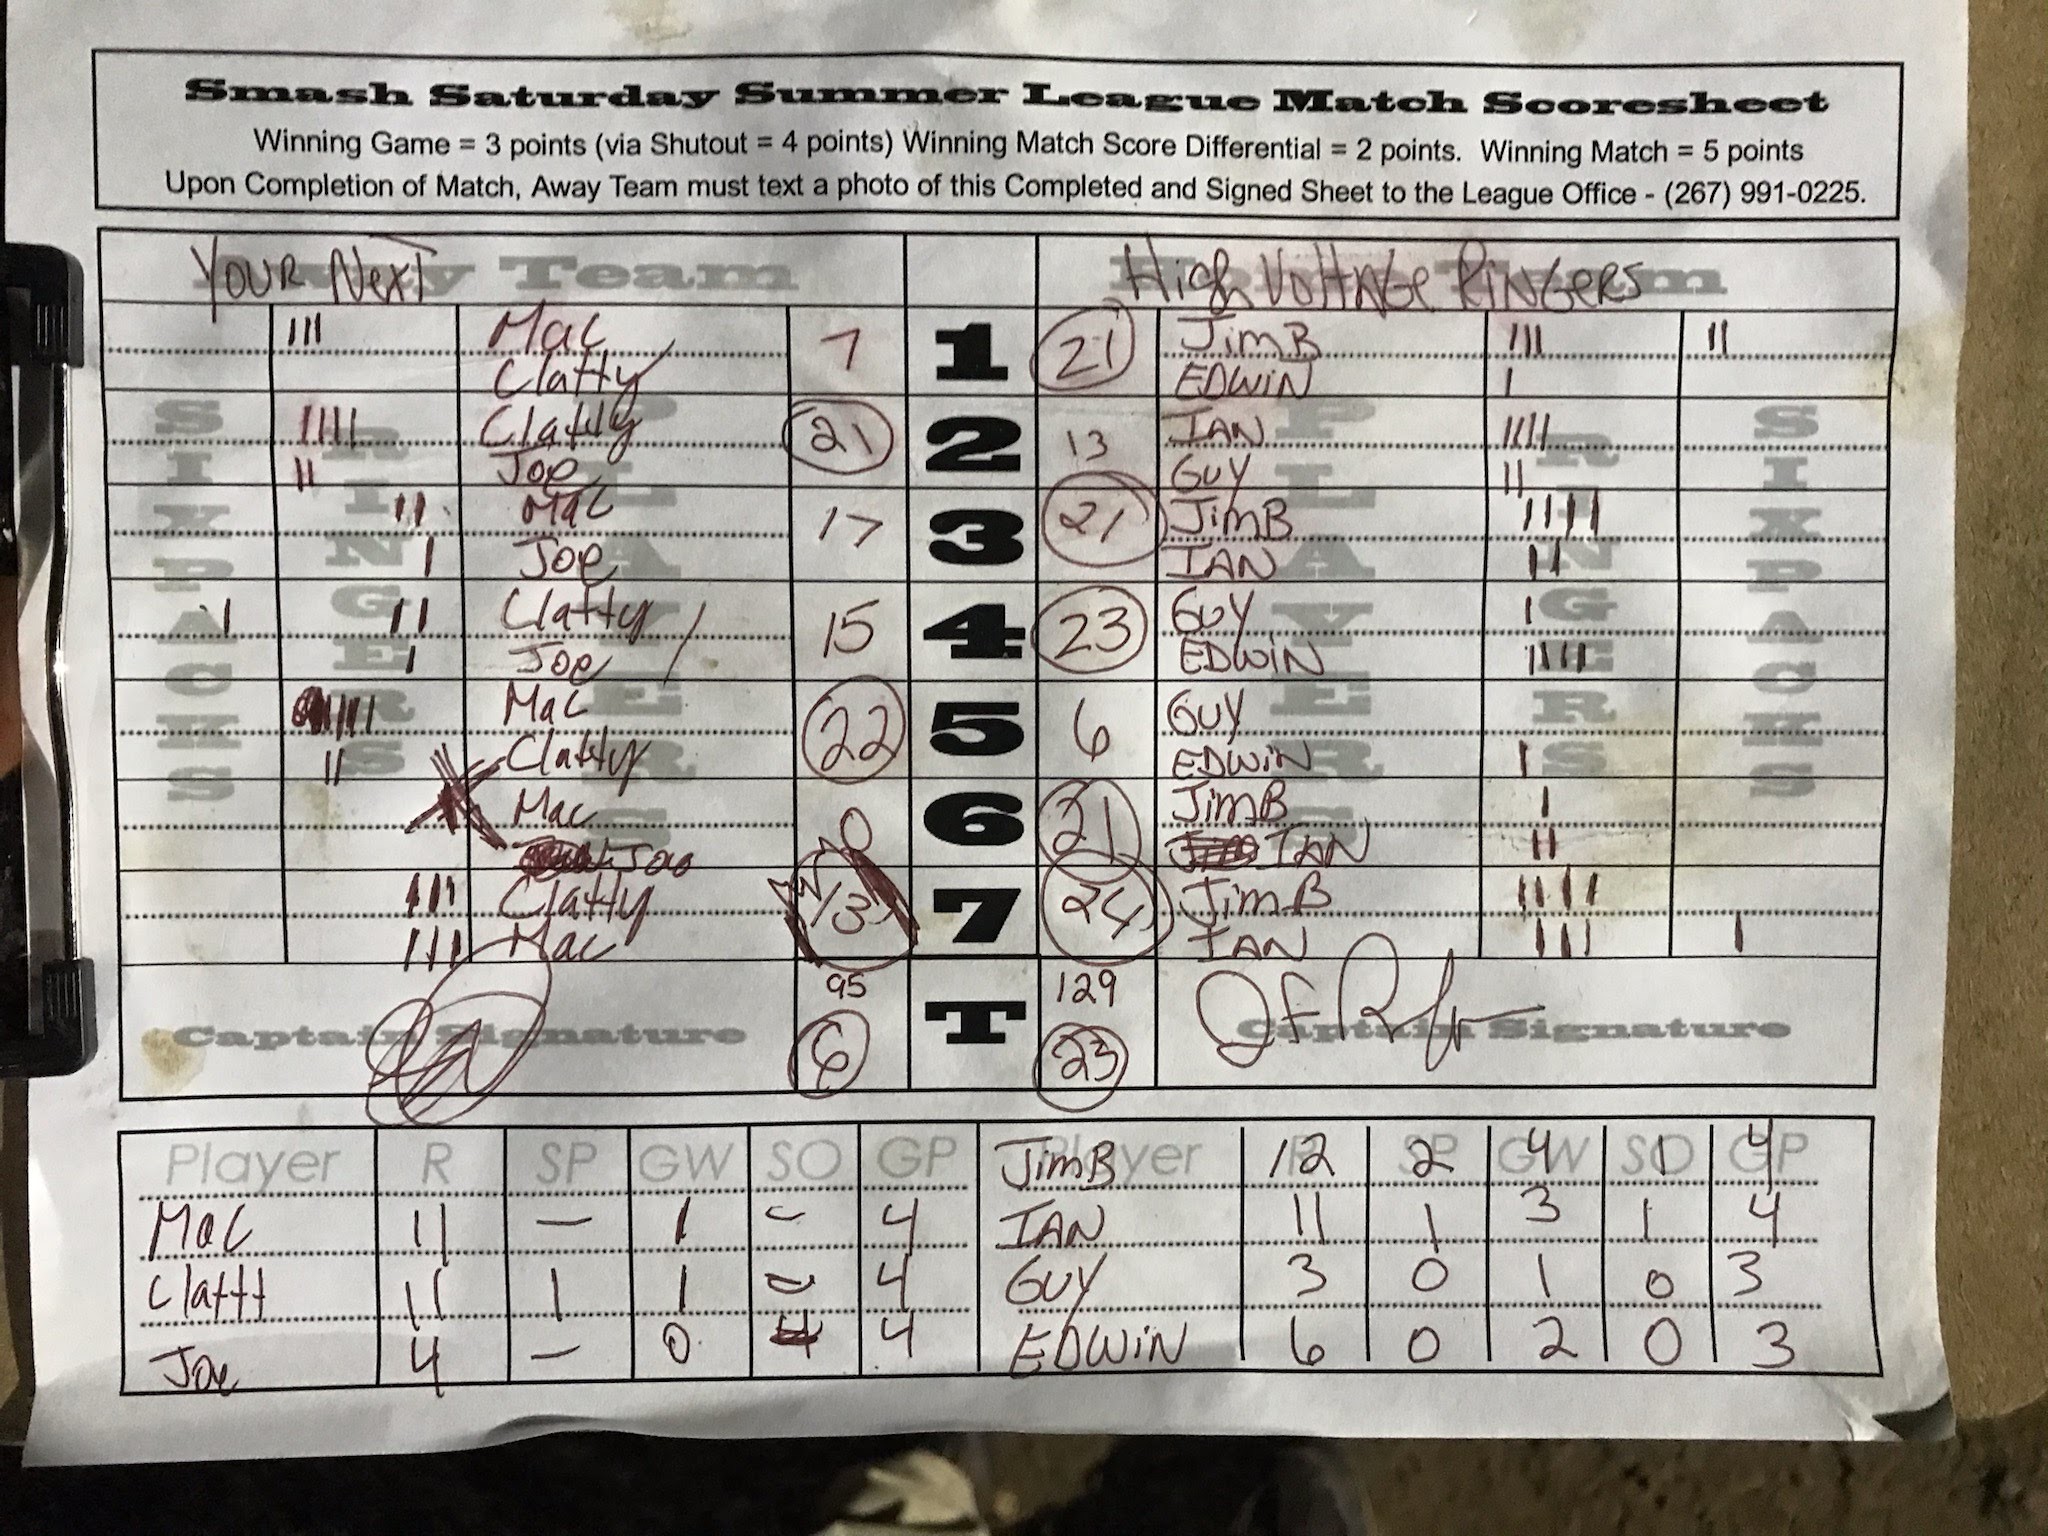 Smash Saturday Summer League Match Scoresheet
Winning Game = 3 points (via Shutout = 4 points) Winning Match Score Differential = 2 points. Winning Match = 5 points
Upon Completion of Match, Away Team must text a photo of this Completed and Signed Sheet to the League Office - (267) 991-0225.
YOUR NexT Away Team High VoltAge RiNGeRS Home Team
III Mac 7 1 21 JimB III II
Clatty EDWiN I
IIII Clatty 21 2 13 IAN IIII
II Joe GUY II
II Mac 17 3 21 JimB IIII
I Joe IAN II
I II Clatty 15 4 23 GUY I
I Joe EDWiN IIII
IIII Mac 22 5 6 GUY
II Clatty EDWiN I
Mac 0 6 21 JimB I
Joe IAN II
III Clatty 13 7 24 JimB IIII
III Mac IAN III I
SIX PACKS RINGERS PLAYERS PLAYERS RINGERS SIX PACKS
95 T 129
Captain Signature 6 23 Captain Signature
Player R SP GW SO GP Player R SP GW SO GP
JimB 12 2 4 1 4
Mac 11 — 1 – 4 IAN 11 1 3 1 4
Clattt 11 1 1 – 4 GUY 3 0 1 0 3
Joe 4 — 0 4 EDWiN 6 0 2 0 3